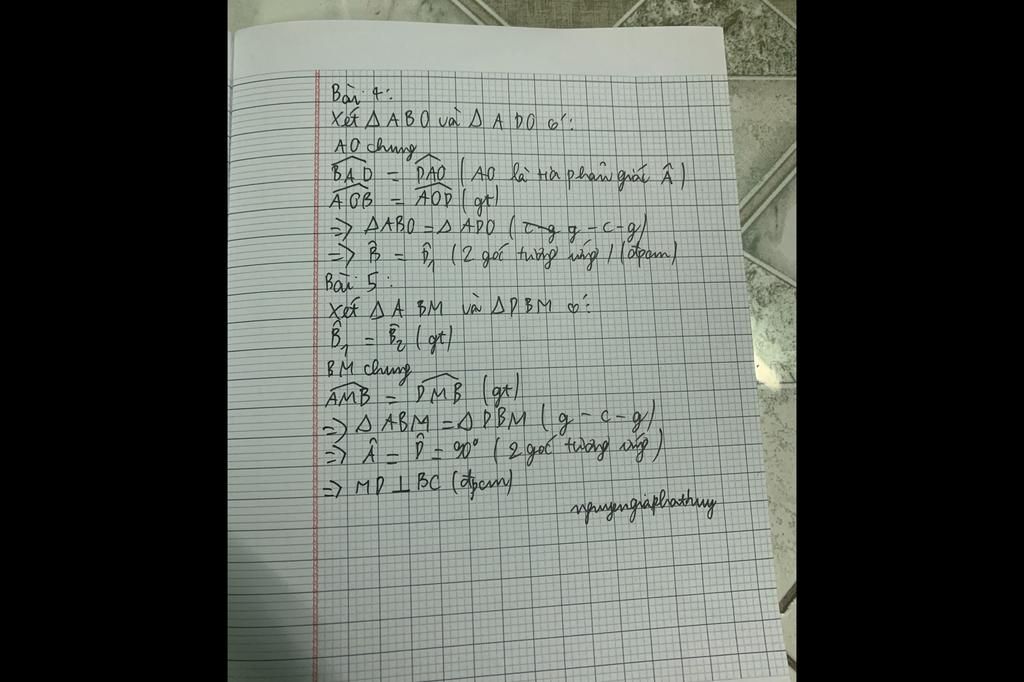 Bài 4:
Xét Δ ABO và Δ ADO có:
AO chung
\widehat{BAD} = \widehat{DAO} (AO là tia phân giác Â)
\widehat{AOB} = \widehat{AOD} (gt)
=> ΔABO = Δ ADO (c-g g-c-g)
=> B̂ = D̂₁ (2 góc tương ứng) (đpcm)
Bài 5:
Xét Δ ABM và ΔDBM có:
B̂₁ = B̂₂ (gt)
BM chung
\widehat{AMB} = \widehat{DMB} (gt)
=> Δ ABM = Δ DBM (g-c-g)
=> Â = D̂ = 90° (2 góc tương ứng)
=> MD ⊥ BC (đpcm)
nguyengiaphathuy